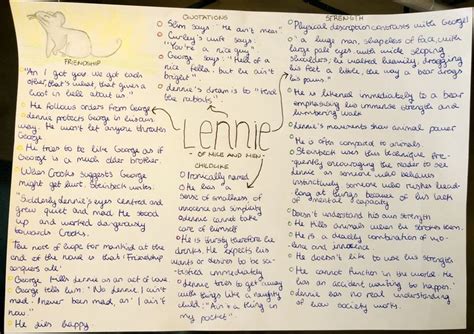 FRIENDSHIP
"An' I got you. We got each
other, that's what, that gives a
hoot in hell about us."
He follows orders from George
Lennie protects George in his own
way. He won't let anyone threaten
George
He tries to be like George as if
George is a much older brother.
When Crooks suggests George
might get hurt. Steinbeck writes
"Suddenly Lennie's eyes centred and
grew quiet and mad. He stood
up and walked dangerously
towards Crooks."
The note of hope for mankind at the
end of the novel is that 'Friendship
conquers all'
George kills Lennie as an act of love.
George tells him: 'No Lennie I ain't
mad. Never been mad, an' I ain't
now.'
He dies happy
QUOTATIONS
Slim says: "He ain't mean"
Curley's wife says:
"You're a nice guy"
George says: "Hell of a
nice fella, but he ain't
bright"
Lennie's dream is to "tend
the rabbits".
Lennie
- OF MICE AND MEN -
CHILDLIKE
Ironically named
He has a
sense of smallness of
innocence and simplicity
Lennie cannot take
care of himself
He is thirsty therefore he
drinks. He expects his
wants or desires to be sa-
tisfied immediately
Lennie tries to get away
with things like a naughty
child: "Ain't a thing in
my pocket"
STRENGTH
Physical description contrasts with George
'a huge man, shapeless of face, with
large pale eyes with wide sloping
shoulders; he walked heavily, dragging
his feet a little, the way a bear drags
his paws'
He is likened immediately to a bear
emphasising his immense strength and
lumbering walk
Lennie's movements show animal power
He is often compared to animals
Steinbeck uses this technique fre-
quently encouraging the reader to see
Lennie as someone who behaves
instinctively someone who rushes head-
long at things because of his lack
of mental capacity
Doesn't understand his own strength
He kills animals when he strokes them.
He is a deadly combination of vio-
lence and innocence
He doesn't like to use his strength
He cannot function in the world. He
has an accident waiting to happen.
Lennie has no real understanding
of how society works.